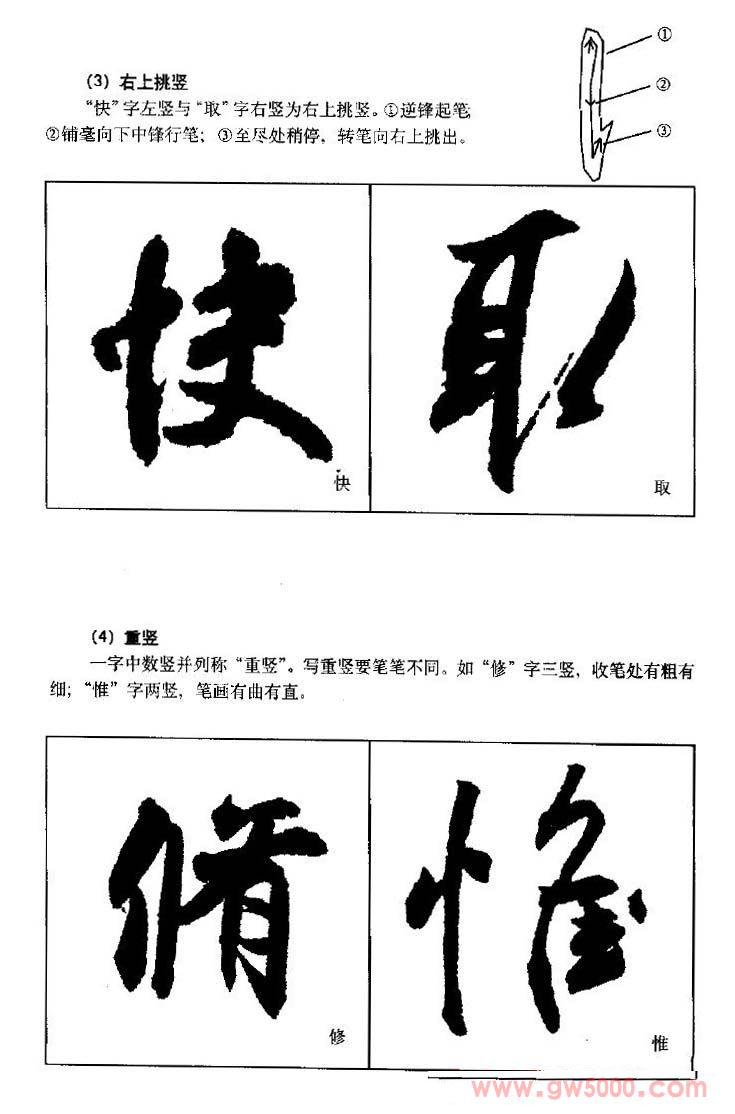 （3）右上挑竖
“快”字左竖与“取”字右竖为右上挑竖。①逆锋起笔
②铺毫向下中锋行笔；③至尽处稍停，转笔向右上挑出。
①
②
③
快 取
快
取
（4）重竖
一字中数竖并列称“重竖”。写重竖要笔笔不同。如“修”字三竖，收笔处有粗有
细；“惟”字两竖，笔画有曲有直。
修 惟
修
惟
www.gw5000.com